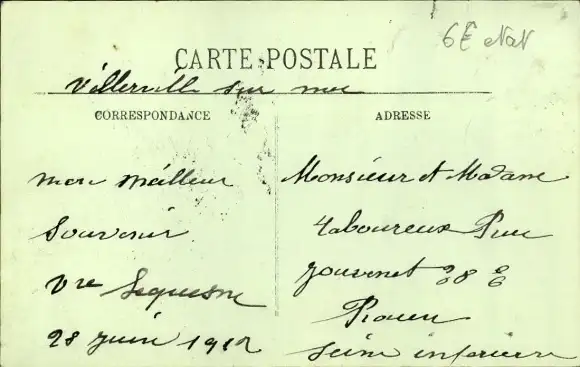 6E NaN
CARTE POSTALE
Villerville sur mer
CORRESPONDANCE
ADRESSE
mon meilleur
Souvenir
Vve Lequesne
28 juin 1912
Monsieur et Madame
Laboureux Rue
Jouvenet 38 E
Rouen
Seine inferieure